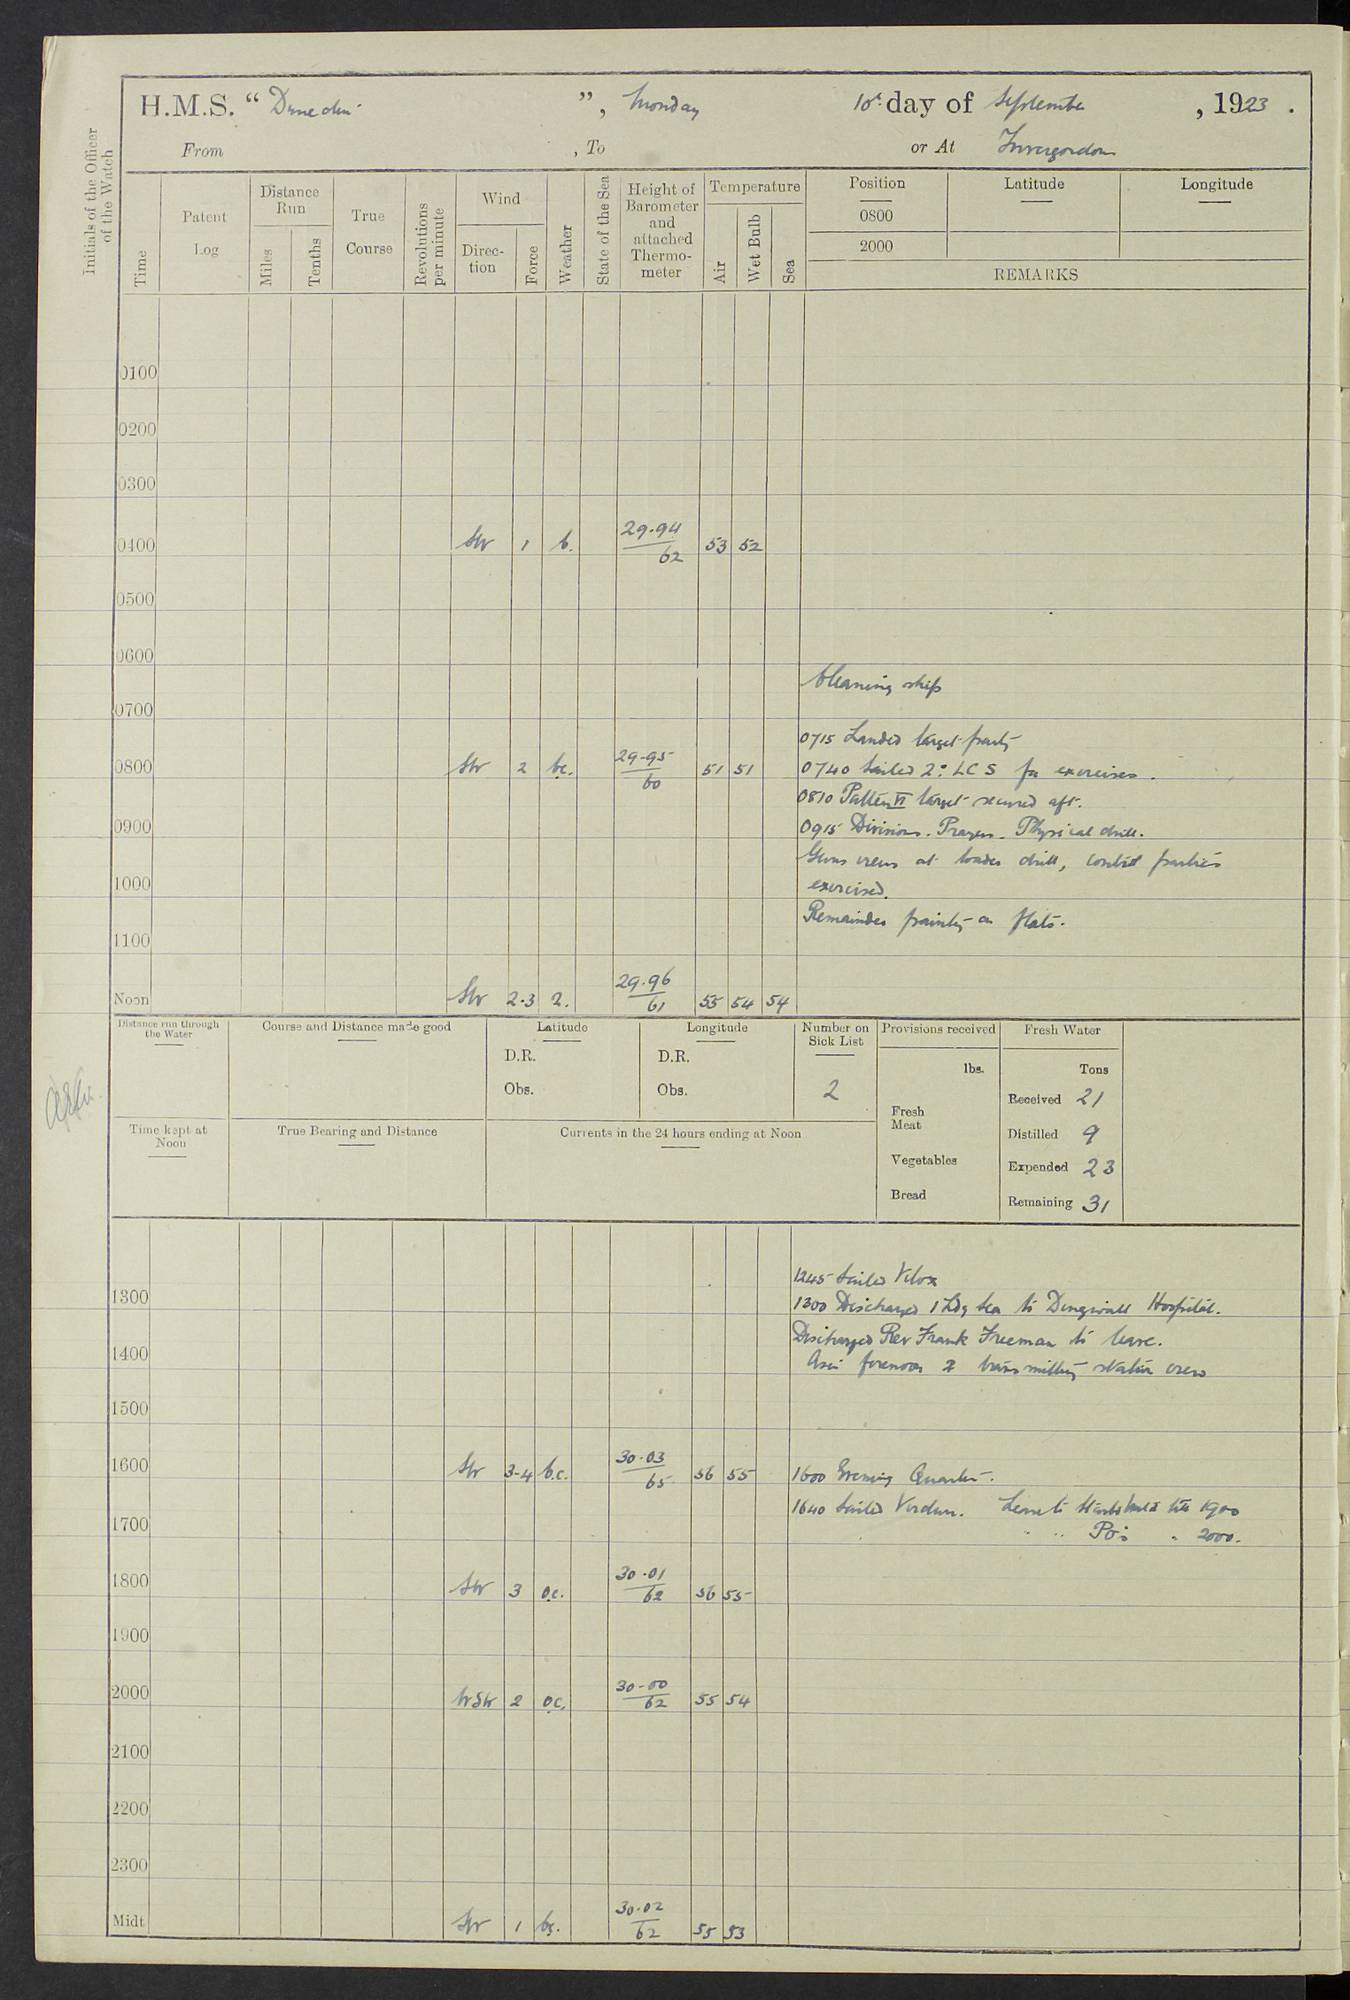 H.M.S. “ Dunedin ”, Monday 10th day of September , 1923 .
From , To or At Invergordon
Initials of the Officer of the Watch
Time
Patent Log
Distance Run
Miles
Tenths
True Course
Revolutions per minute
Wind
Direc-tion
Force
Weather
State of the Sea
Height of Barometer and attached Thermo-meter
Temperature
Air
Wet Bulb
Sea
Position Latitude Longitude
0800
2000
REMARKS
0100
0200
0300
0400 SW 1 b. 29.94/62 53 52
0500
0600
Cleaning ship
0700
0715 Landed target party
0800 SW 2 bc. 29.95/60 51 51
0740 Sailed 2nd LCS for exercises.
0810 Patten VI target secured aft.
0900
0915 Divisions. Prayers. Physical drill.
Guns crews at loader drill, control parties
1000
exercised.
Remainder painting on flats.
1100
Noon SW 2.3 2. 29.96/61 55 54 54
Distance run through the Water
Course and Distance made good
Latitude
D.R.
Obs.
Longitude
D.R.
Obs.
Number on Sick List
2
Provisions received
lbs.
Fresh Meat
Vegetables
Bread
Fresh Water
Tons
Received 21
Distilled 9
Expended 23
Remaining 31
Time kept at Noon
True Bearing and Distance
Currents in the 24 hours ending at Noon
1245 Sailed Velox
1300
1300 Discharged 1 Ldg Sea to Dingwall Hospital.
Discharged Rev Frank Freeman to leave.
1400
forenoon & transmitting station crew
1500
1600 SW 3-4 b.c. 30.03/65 56 55
1600 Evening Quarters.
1640 Sailed Verdun. Leave to Starboard till 1900
1700
" " POs " 2000.
1800 SW 3 o.c. 30.01/62 56 55
1900
2000 WSW 2 o.c. 30.00/62 55 54
2100
2200
2300
Midt SW 1 bc. 30.02/62 55 53